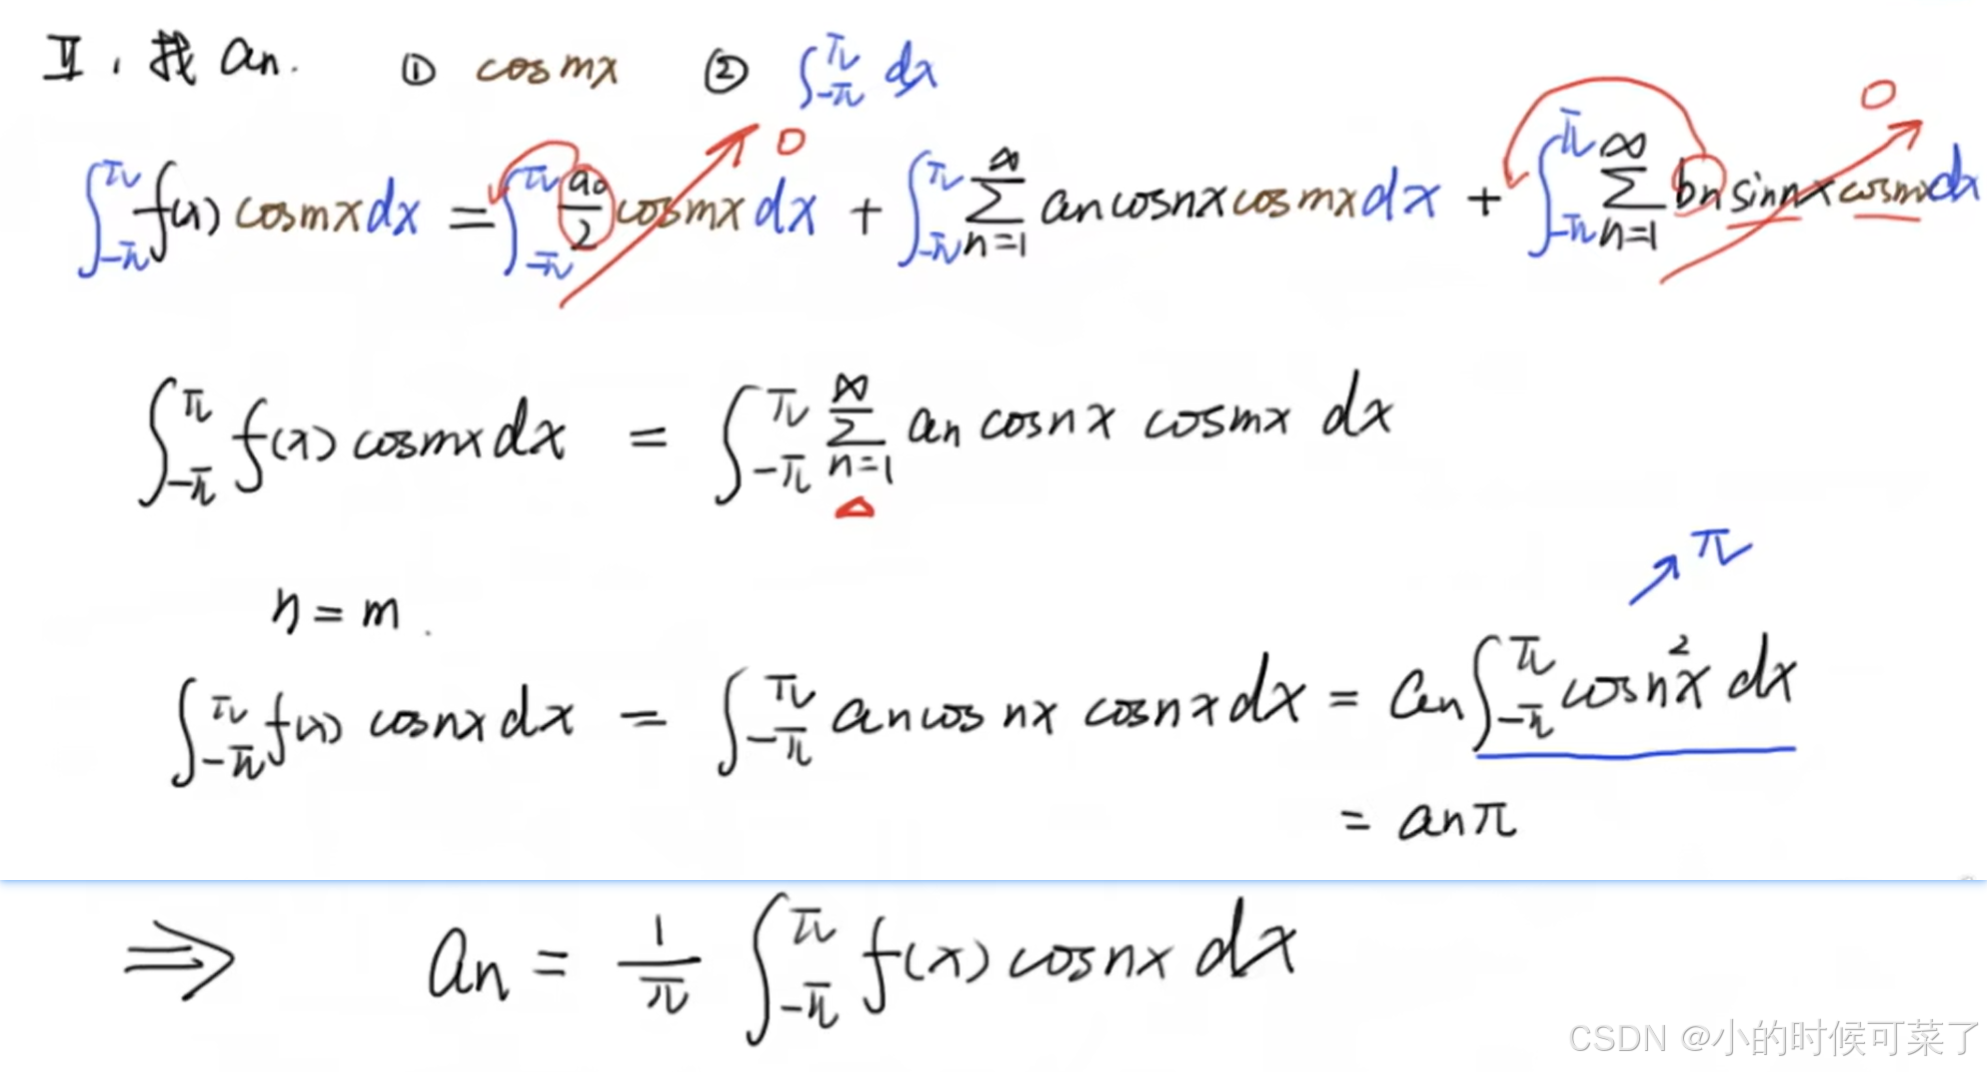 Ⅱ. 找 an. ① cosmx ② ∫_{-π}^{π} dx
∫_{-π}^{π} f(x) cosmx dx = ∫_{-π}^{π} a₀/2 cosmx dx 0 + ∫_{-π}^{π} ∑_{n=1}^{∞} an cosnx cosmx dx + ∫_{-π}^{π} ∑_{n=1}^{∞} bn sinnx cosmx dx 0
∫_{-π}^{π} f(x) cosmx dx = ∫_{-π}^{π} ∑_{n=1}^{∞} an cosnx cosmx dx
n = m.
∫_{-π}^{π} f(x) cosnx dx = ∫_{-π}^{π} an cos nx cosnx dx = an ∫_{-π}^{π} cosn²x dx π
= anπ
⇒ an = 1/π ∫_{-π}^{π} f(x) cosnx dx
CSDN @小的时候可菜了